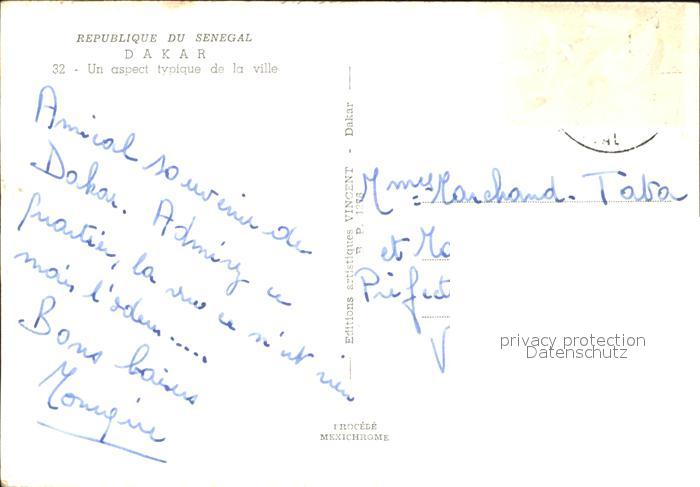 REPUBLIQUE DU SENEGAL
DAKAR
32 - Un aspect typique de la ville
Amical souvenir de
Dakar. Admirez ce
quartier, la vue ce n'est rien
mais l'odeur.....
Bons baisers
Monique
Editions artistiques VINCENT - Dakar
B. P. 1.78
AL
Mmes Marchand. Taba
et Ma
Préfect
V
privacy protection
Datenschutz
PROCÉDÉ
MEXICHROME